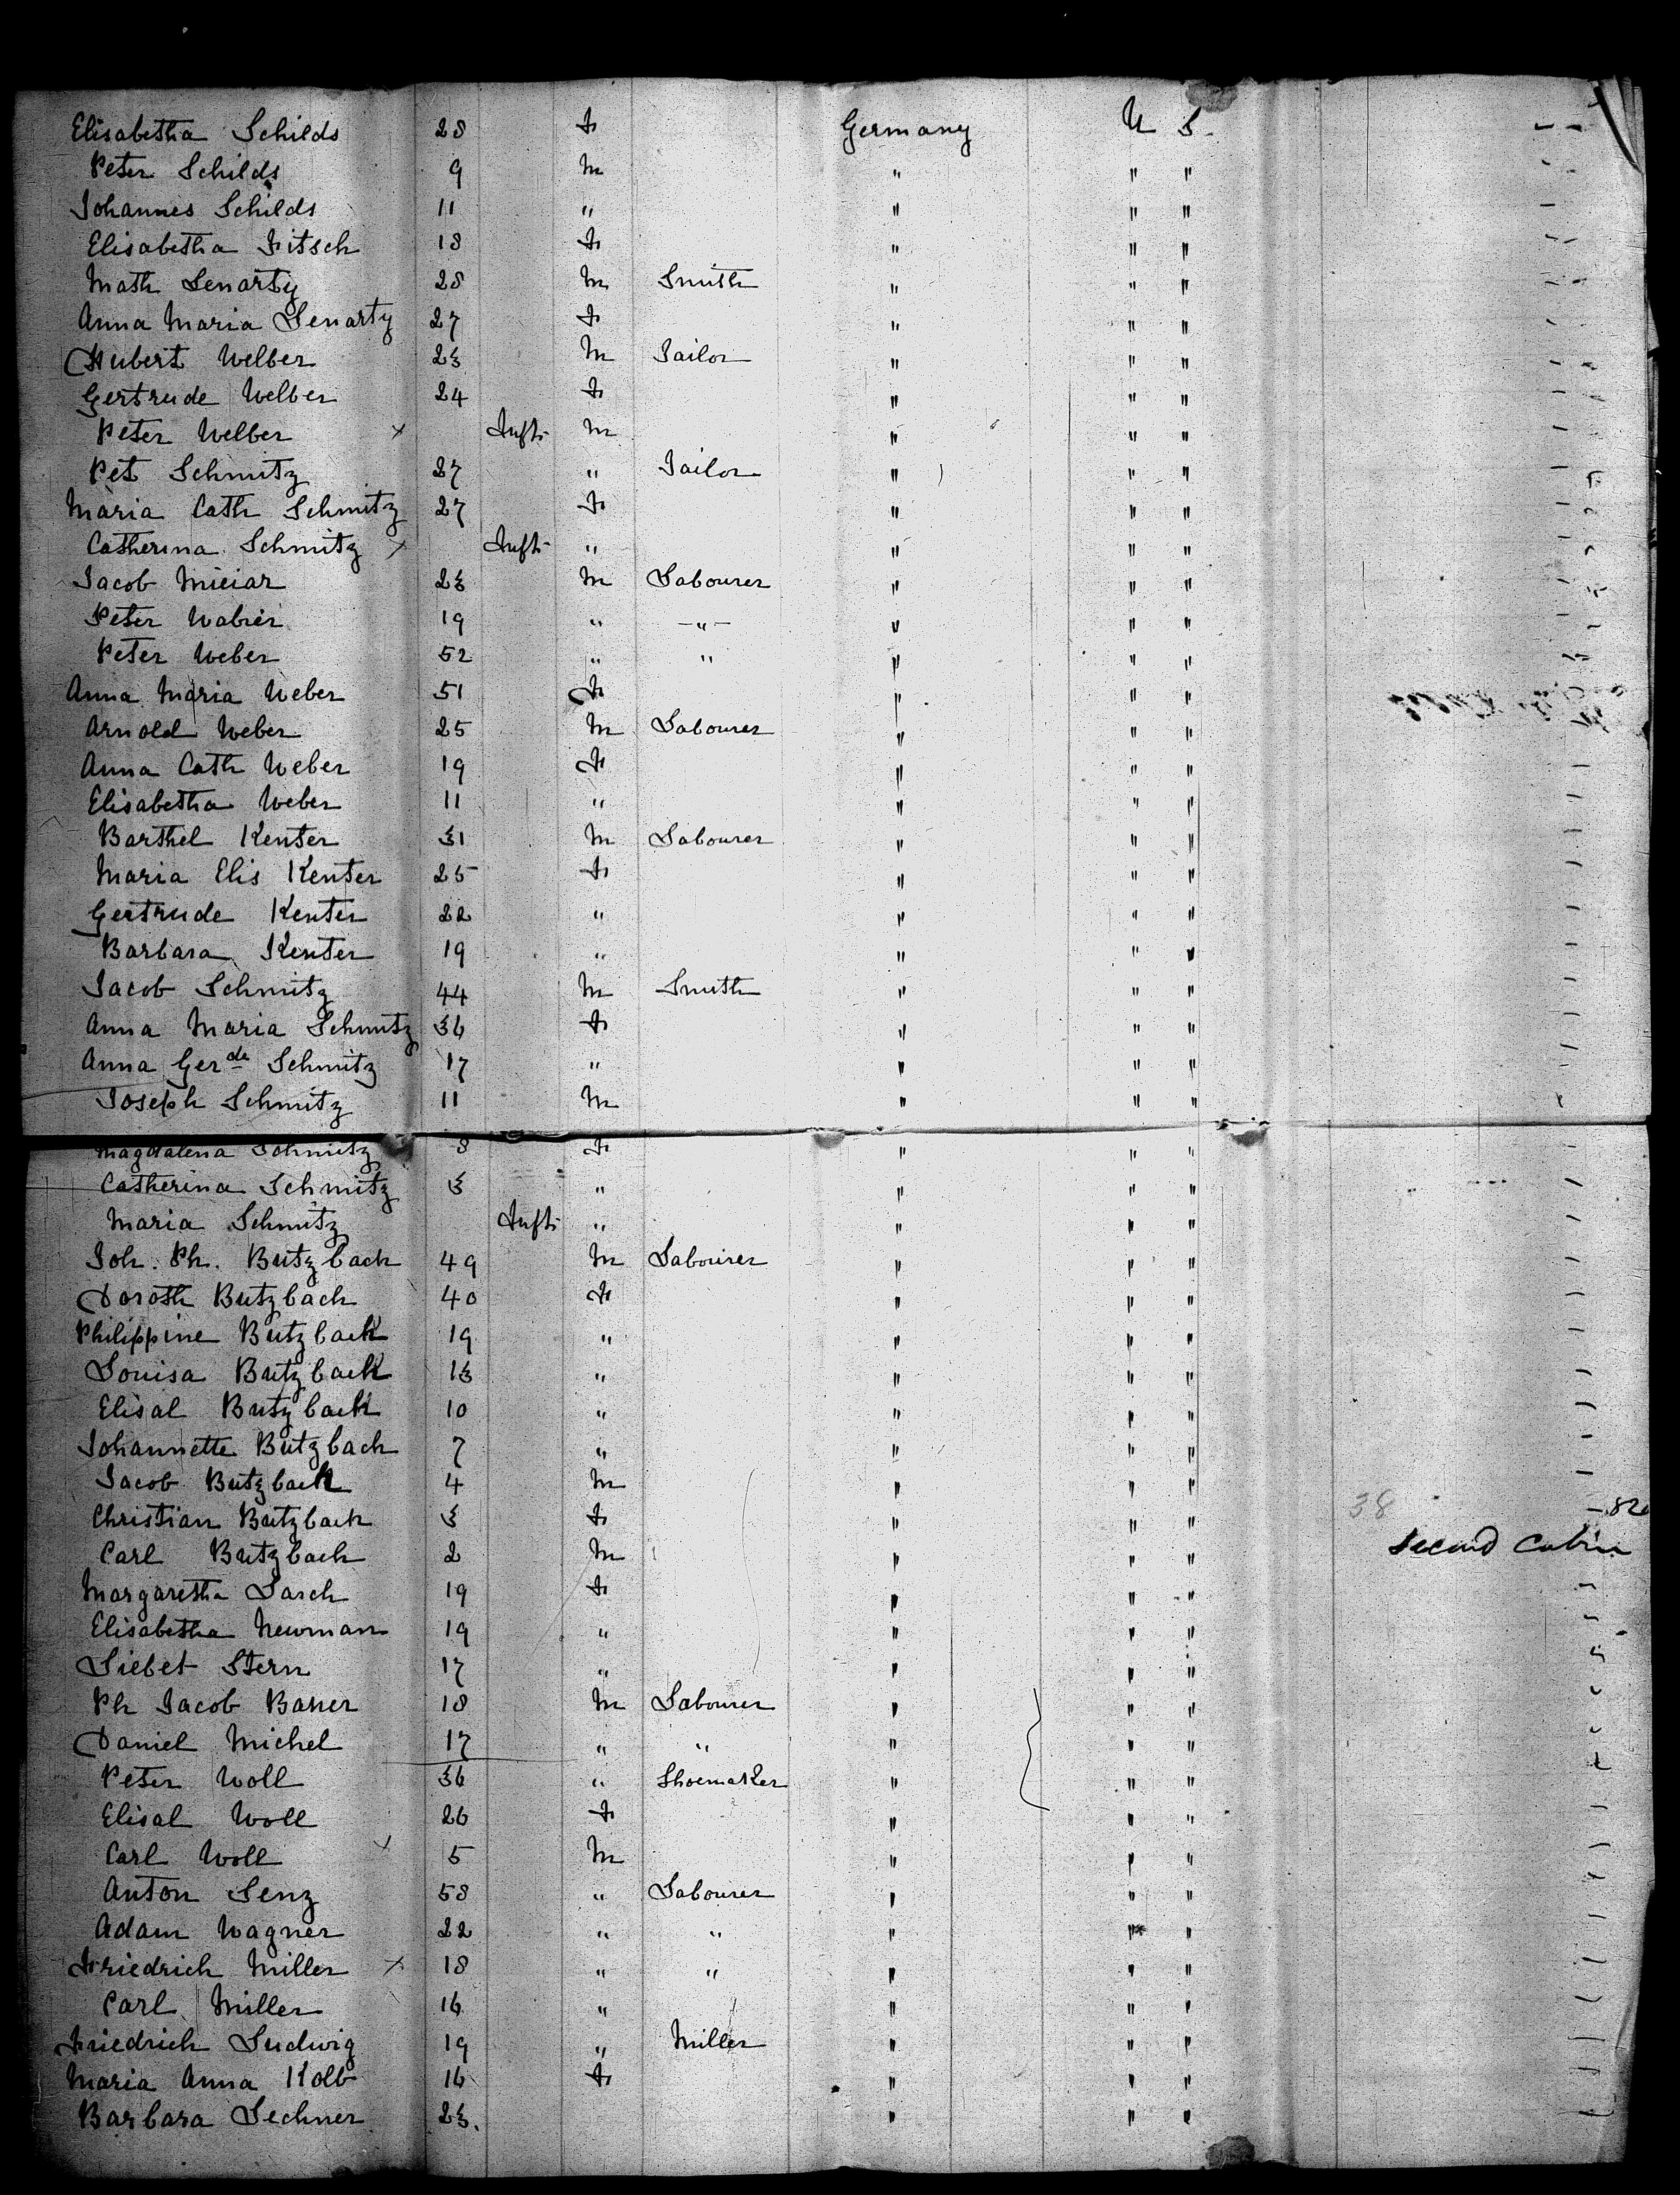 Elisabetha Schilds 28 F Germany U S
Peter Schilds 9 M " " "
Johannes Schilds 11 " " " "
Elisabetha Fitsch 18 F " " "
Math Lenarty 28 M Smith " " "
Anna Maria Lenarty 27 F " " "
Hubert Welber 23 M Tailor " " "
Gertrude Welber 24 F " " "
Peter Welber x Inft. M " " "
Pet Schmitz 27 " Tailor " " "
Maria Cath Schmitz 27 F " " "
Catherina Schmitz x Inft. " " " "
Jacob 23 M Labourer " " "
Peter Wabier 19 " -"- " " "
Peter Weber 52 " " " " "
Anna Maria Weber 51 F " " "
Arnold Weber 25 M Labourer " " "
Anna Cath Weber 19 F " " "
Elisabetha Weber 11 " " " "
Barthel Kenter 31 M Labourer " " "
Maria Elis Kenter 25 F " " "
Gertrude Kenter 22 " " " "
Barbara Kenter 19 " " " "
Jacob Schmitz 44 M Smith " " "
Anna Maria Schmitz 36 F " " "
Anna Gerde Schmitz 17 " " " "
Joseph Schmitz 11 M " " "
Magdalena Schmitz 8 F " " "
Catherina Schmitz 3 " " " "
Maria Schmitz Inft. " " " "
Joh. Ph. Butzbach 49 M Labourer " " "
Doroth Butzbach 40 F " " "
Philippine Butzbach 19 " " " "
Louisa Butzbach 13 " " " "
Elisal Butzbach 10 " " " "
Johannette Butzbach 7 " " " "
Jacob Butzbach 4 M " " "
Christian Butzbach 3 F " " " 38 82
Carl Butzbach 2 M " " " second Cabin
Margaretha Larch 19 F " " "
Elisabetha Newman 19 " " " "
Siebet Stern 17 " " " "
Ph Jacob Baner 18 M Labourer " " "
Daniel Michel 17 " " " " "
Peter Woll 36 " Shoemaker " " "
Elisal Woll 26 F " " "
Carl Woll x 5 M " " "
Anton Lenz 58 " Labourer " " "
Adam Wagner 22 " " " " "
Friedrich Miller x 18 " " " " "
Carl Miller 16 " " " "
Friedrich Ludwig 19 " Miller " " "
Maria Anna Kolb 16 F " " "
Barbara Lechner 23. " " "